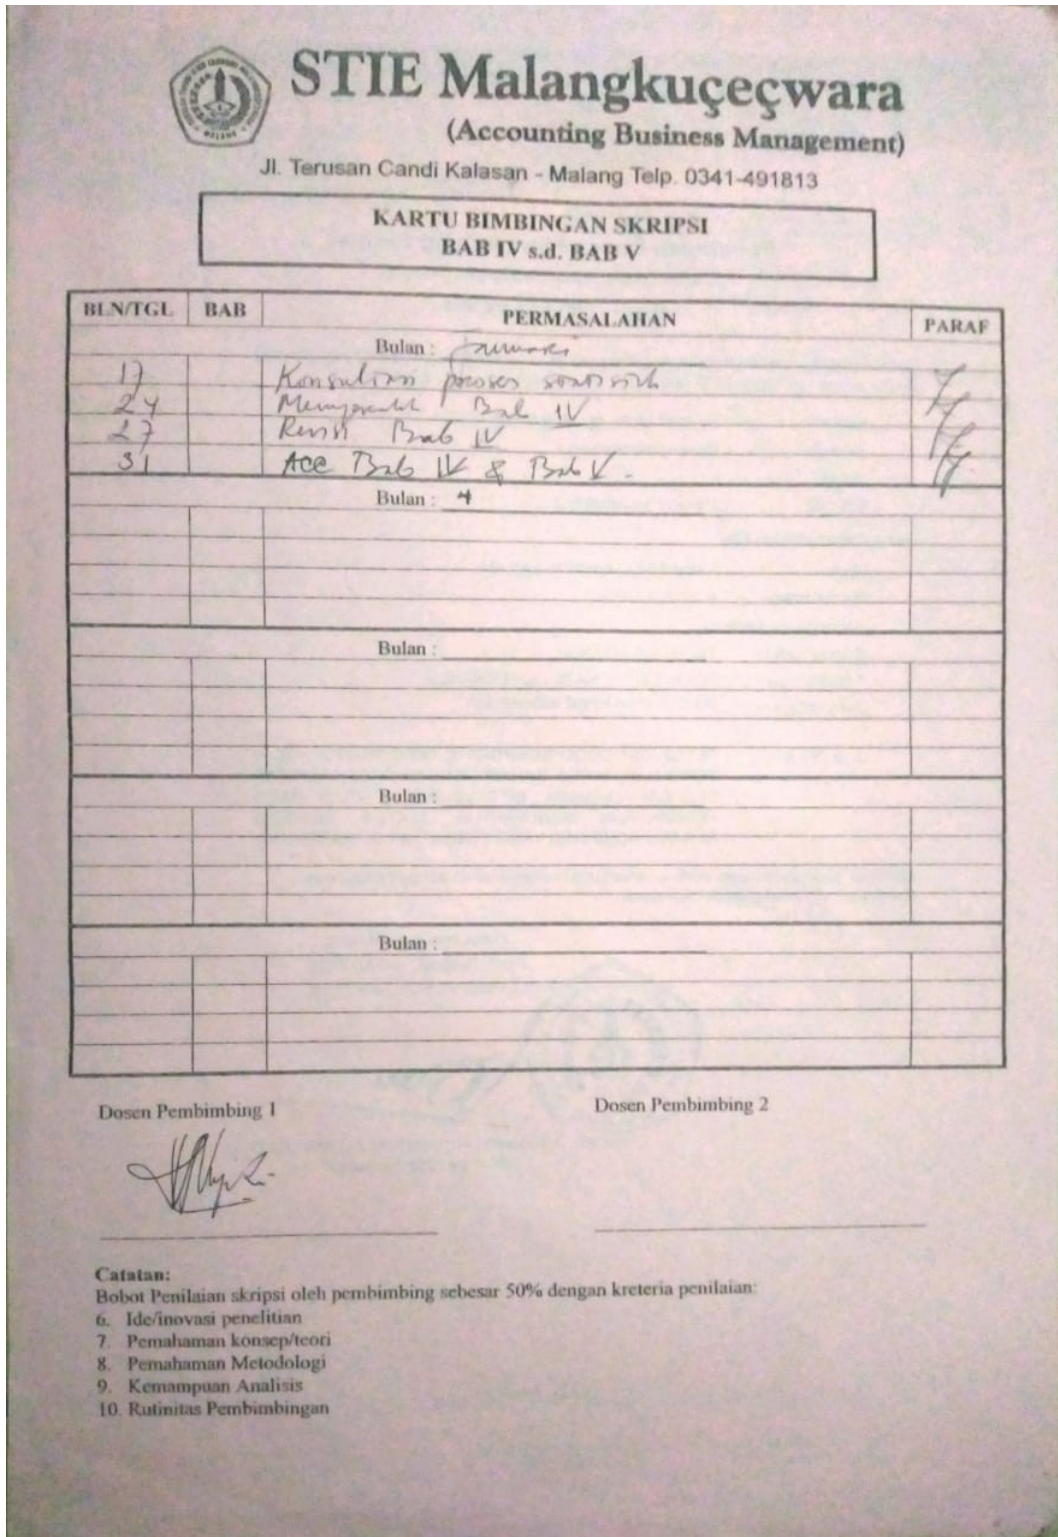 STIE Malangkuçeçwara
(Accounting Business Management)
Jl. Terusan Candi Kalasan - Malang Telp. 0341-491813
KARTU BIMBINGAN SKRIPSI
BAB IV s.d. BAB V
BLN/TGL BAB PERMASALAHAN PARAF
Bulan :
17 proses
24 Bab IV
27 Revisi Bab IV
31 Acc Bab IV & Bab V.
Bulan : 4
Bulan :
Bulan :
Bulan :
Dosen Pembimbing 1 Dosen Pembimbing 2
Catatan:
Bobot Penilaian skripsi oleh pembimbing sebesar 50% dengan kreteria penilaian:
6. Ide/inovasi penelitian
7. Pemahaman konsep/teori
8. Pemahaman Metodologi
9. Kemampuan Analisis
10. Rutinitas Pembimbingan